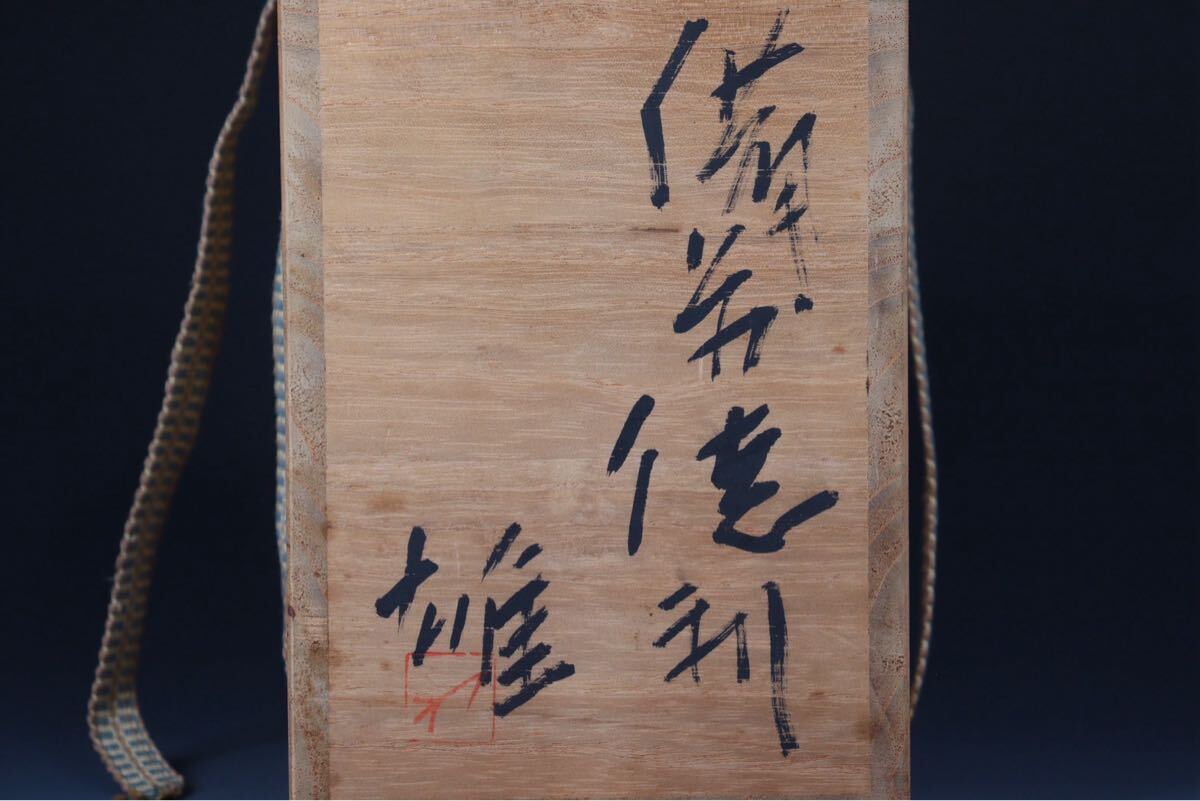 備前徳利
雄